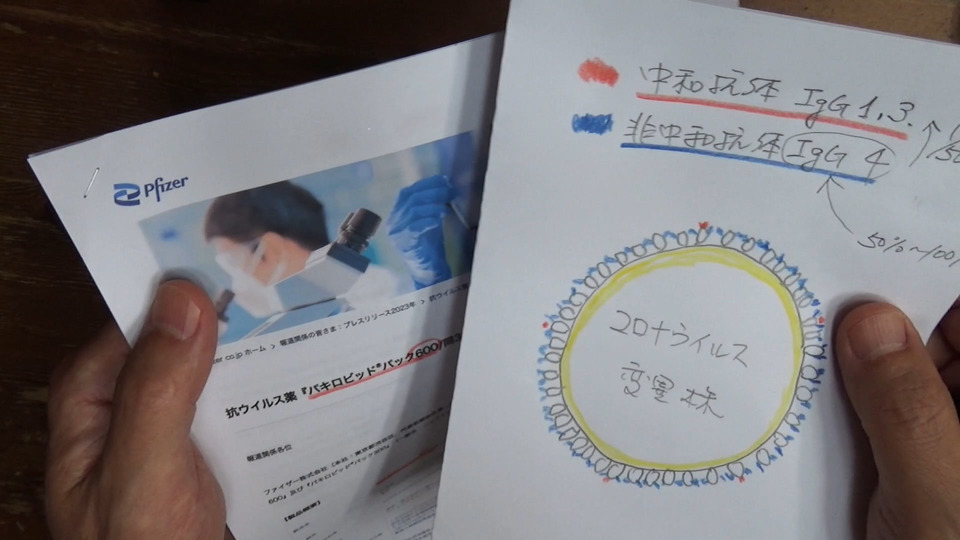 Pfizer
er co.jp ホーム > 報道関係の皆さま:プレスリリース2023年 > 抗ウイルス
抗ウイルス薬『パキロビッド®パック600/同3
報道関係各位
ファイザー株式会社(本社:東京都渋谷区、
600』及び『パキロビッド®パック300』
【製品概要】
中和抗体 IgG 1,3.
非中和抗体 IgG 4
50%~100
コロナウイルス
変異株